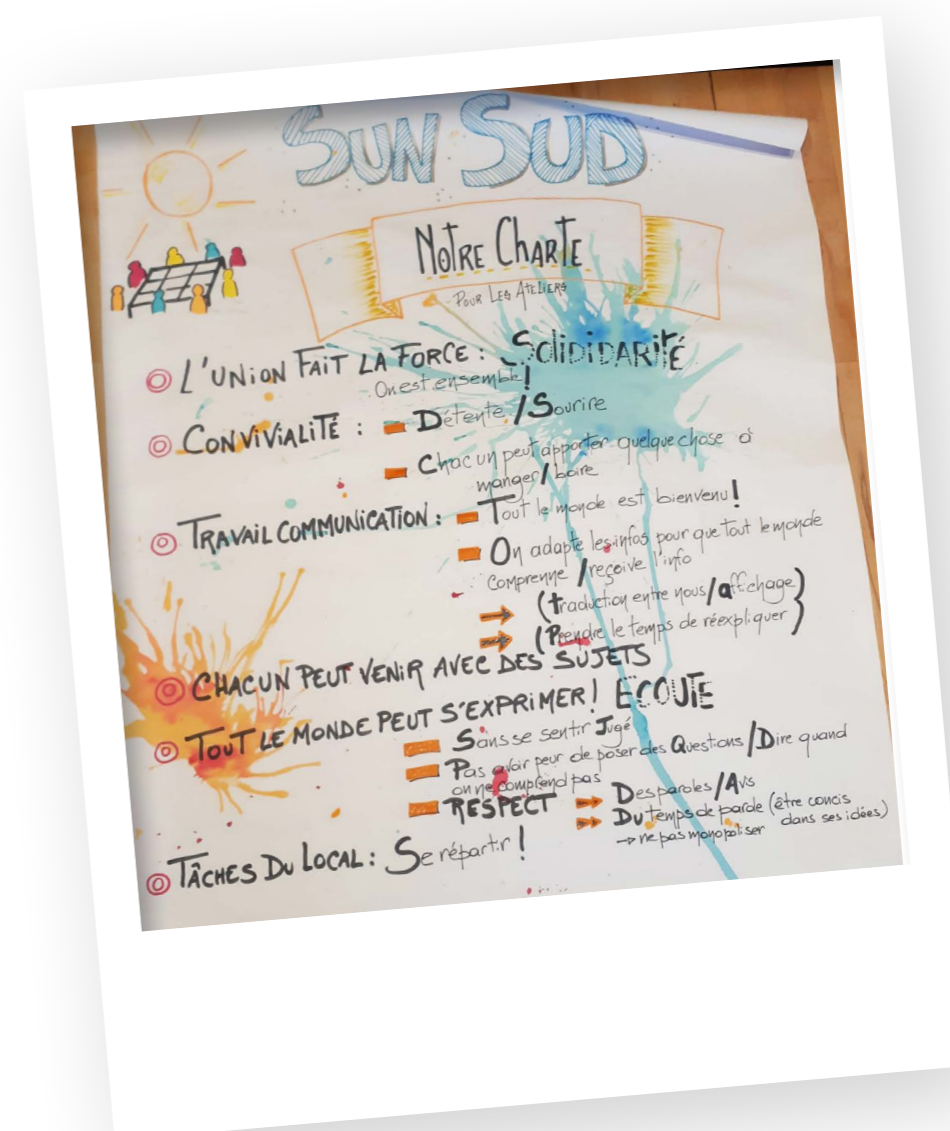 SUN SUD
NOTRE CHARTE
POUR LES ATELIERS
L'UNION FAIT LA FORCE : SOLIDIDARITÉ
On est ensemble!
CONVIVIALITÉ : - Détente / Sourire
- Chacun peut apporter quelque chose à
manger / boire
TRAVAIL COMMUNICATION : - Tout le monde est bienvenu!
- On adapte les infos pour que tout le monde
comprenne / reçoive l'info
→ (traduction entre nous / affichage)
→ (Prendre le temps de réexpliquer)
CHACUN PEUT VENIR AVEC DES SUJETS
TOUT LE MONDE PEUT S'EXPRIMER! ECOUTE
- Sans se sentir Jugé
- Pas avoir peur de poser des Questions / Dire quand
on ne comprend pas
- RESPECT → Des paroles / Avis
→ Du temps de parole (être concis
dans ses idées)
→ ne pas monopoliser
TÂCHES DU LOCAL : Se répartir!